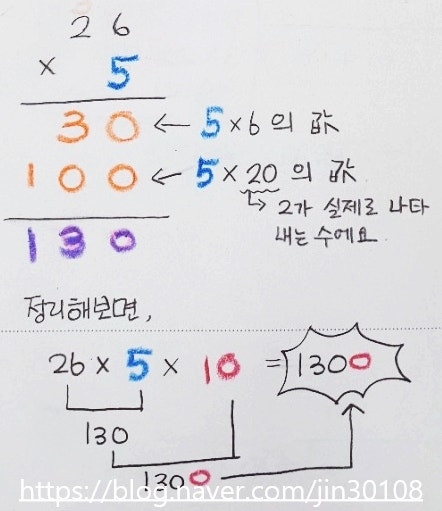 26
× 5
30 ← 5×6의 값
100 ← 5×20의 값
↳ 2가 실제로 나타
내는 수에요.
130
정리해보면,
26 × 5 × 10 = 1300
130
1300
https://blog.naver.com/jin30108